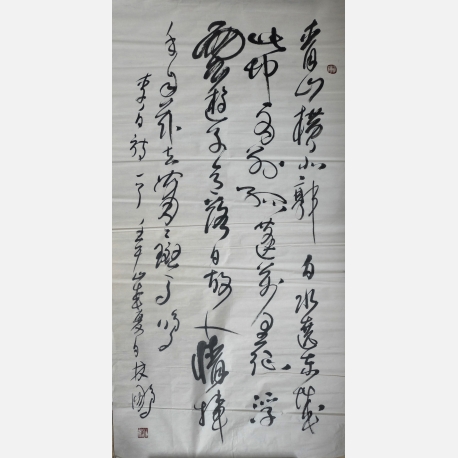 青山横北郭白水遶东城
此地一为别孤蓬万里征浮
云游子意落日故人情挥
手自兹去萧萧班马鸣
李白诗一首